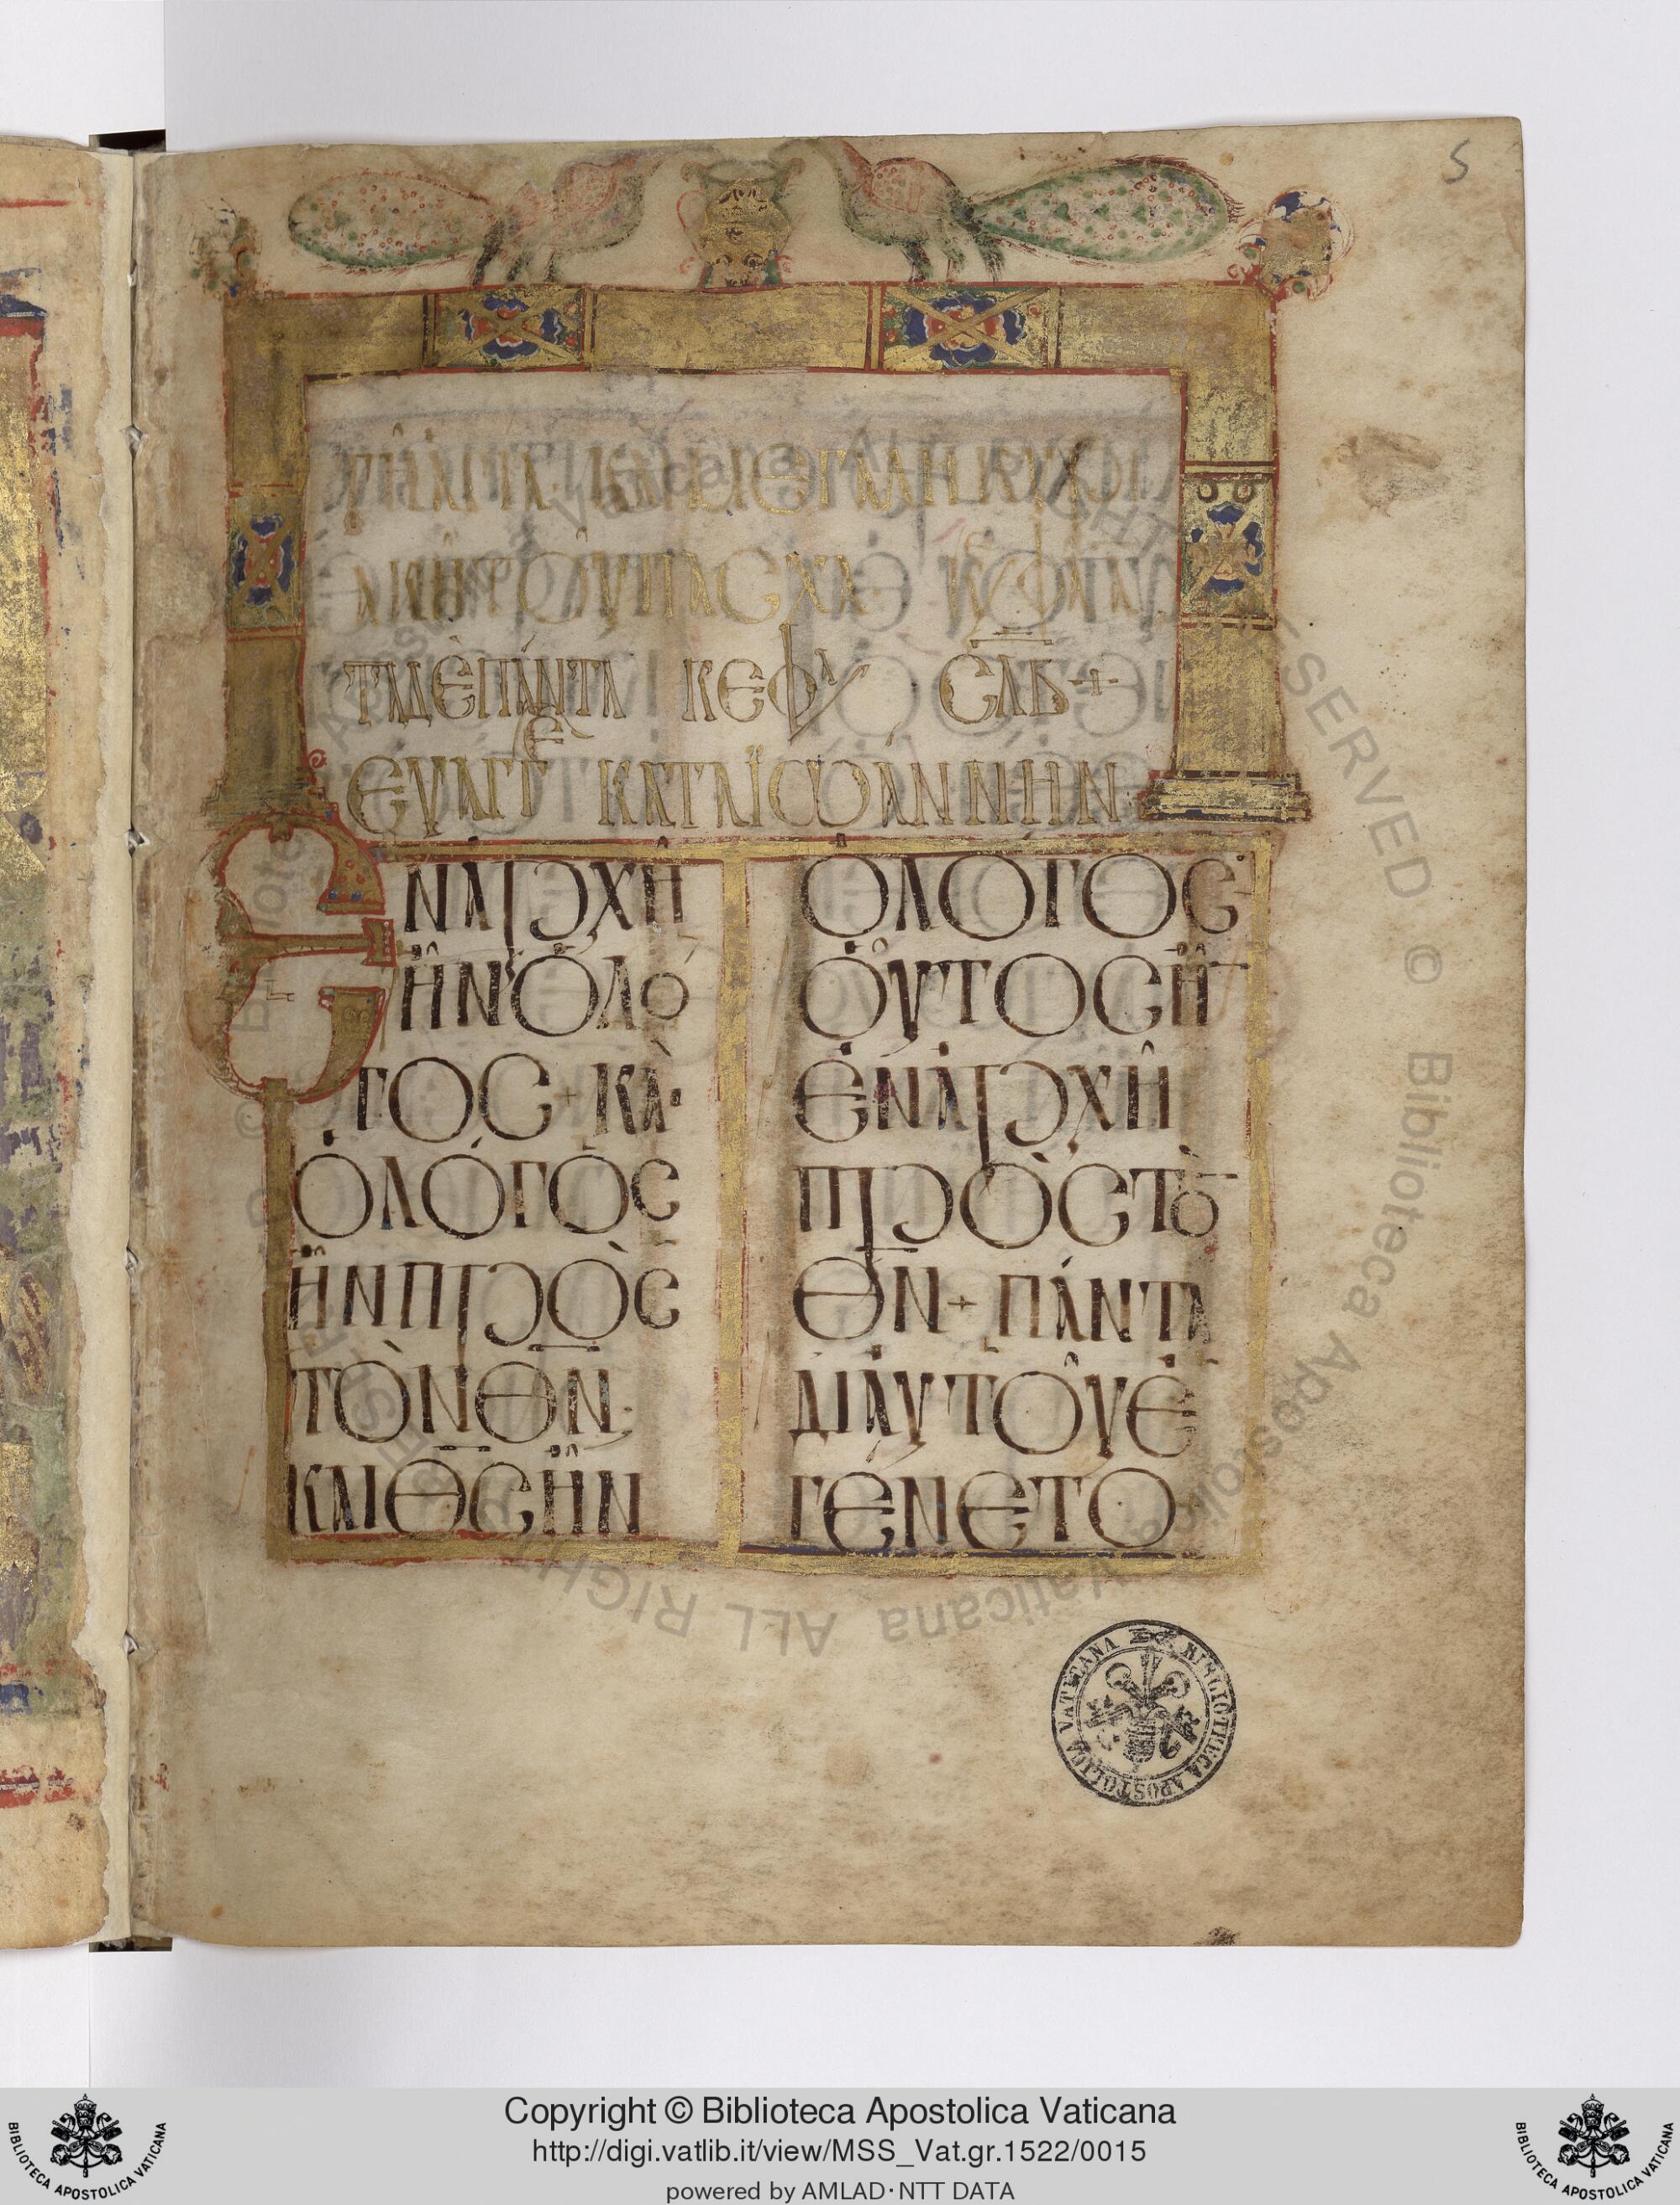 5
ΤΑΔΕ ΠΑΝΤΑ ΚΕΦΑ
ΕΥΑΓΓΕ ΚΑΤΑ ΙΩΑΝΝΗΝ
ΕΝ ΑΡΧΗ
ΗΝ Ο ΛΟ
ΓΟΣ + ΚΑΙ
Ο ΛΟΓΟΣ
ΗΝ ΠΡΟΣ
ΤΟΝ ΘΝ·
ΚΑΙ ΘΣ ΗΝ
Ο ΛΟΓΟΣ·
ΟΥΤΟΣ ΗΝ
ΕΝ ΑΡΧΗ
ΠΡΟΣ ΤΟΝ
ΘΝ + ΠΑΝΤΑ
ΔΙ ΑΥΤΟΥ Ε
ΓΕΝΕΤΟ
BIBLIOTHECA APOSTOLICA VATICANA
© Biblioteca Apostolica Vaticana ALL RIGHTS RESERVED
Copyright © Biblioteca Apostolica Vaticana
http://digi.vatlib.it/view/MSS_Vat.gr.1522/0015
powered by AMLAD·NTT DATA
BIBLIOTECA APOSTOLICA VATICANA
BIBLIOTECA APOSTOLICA VATICANA